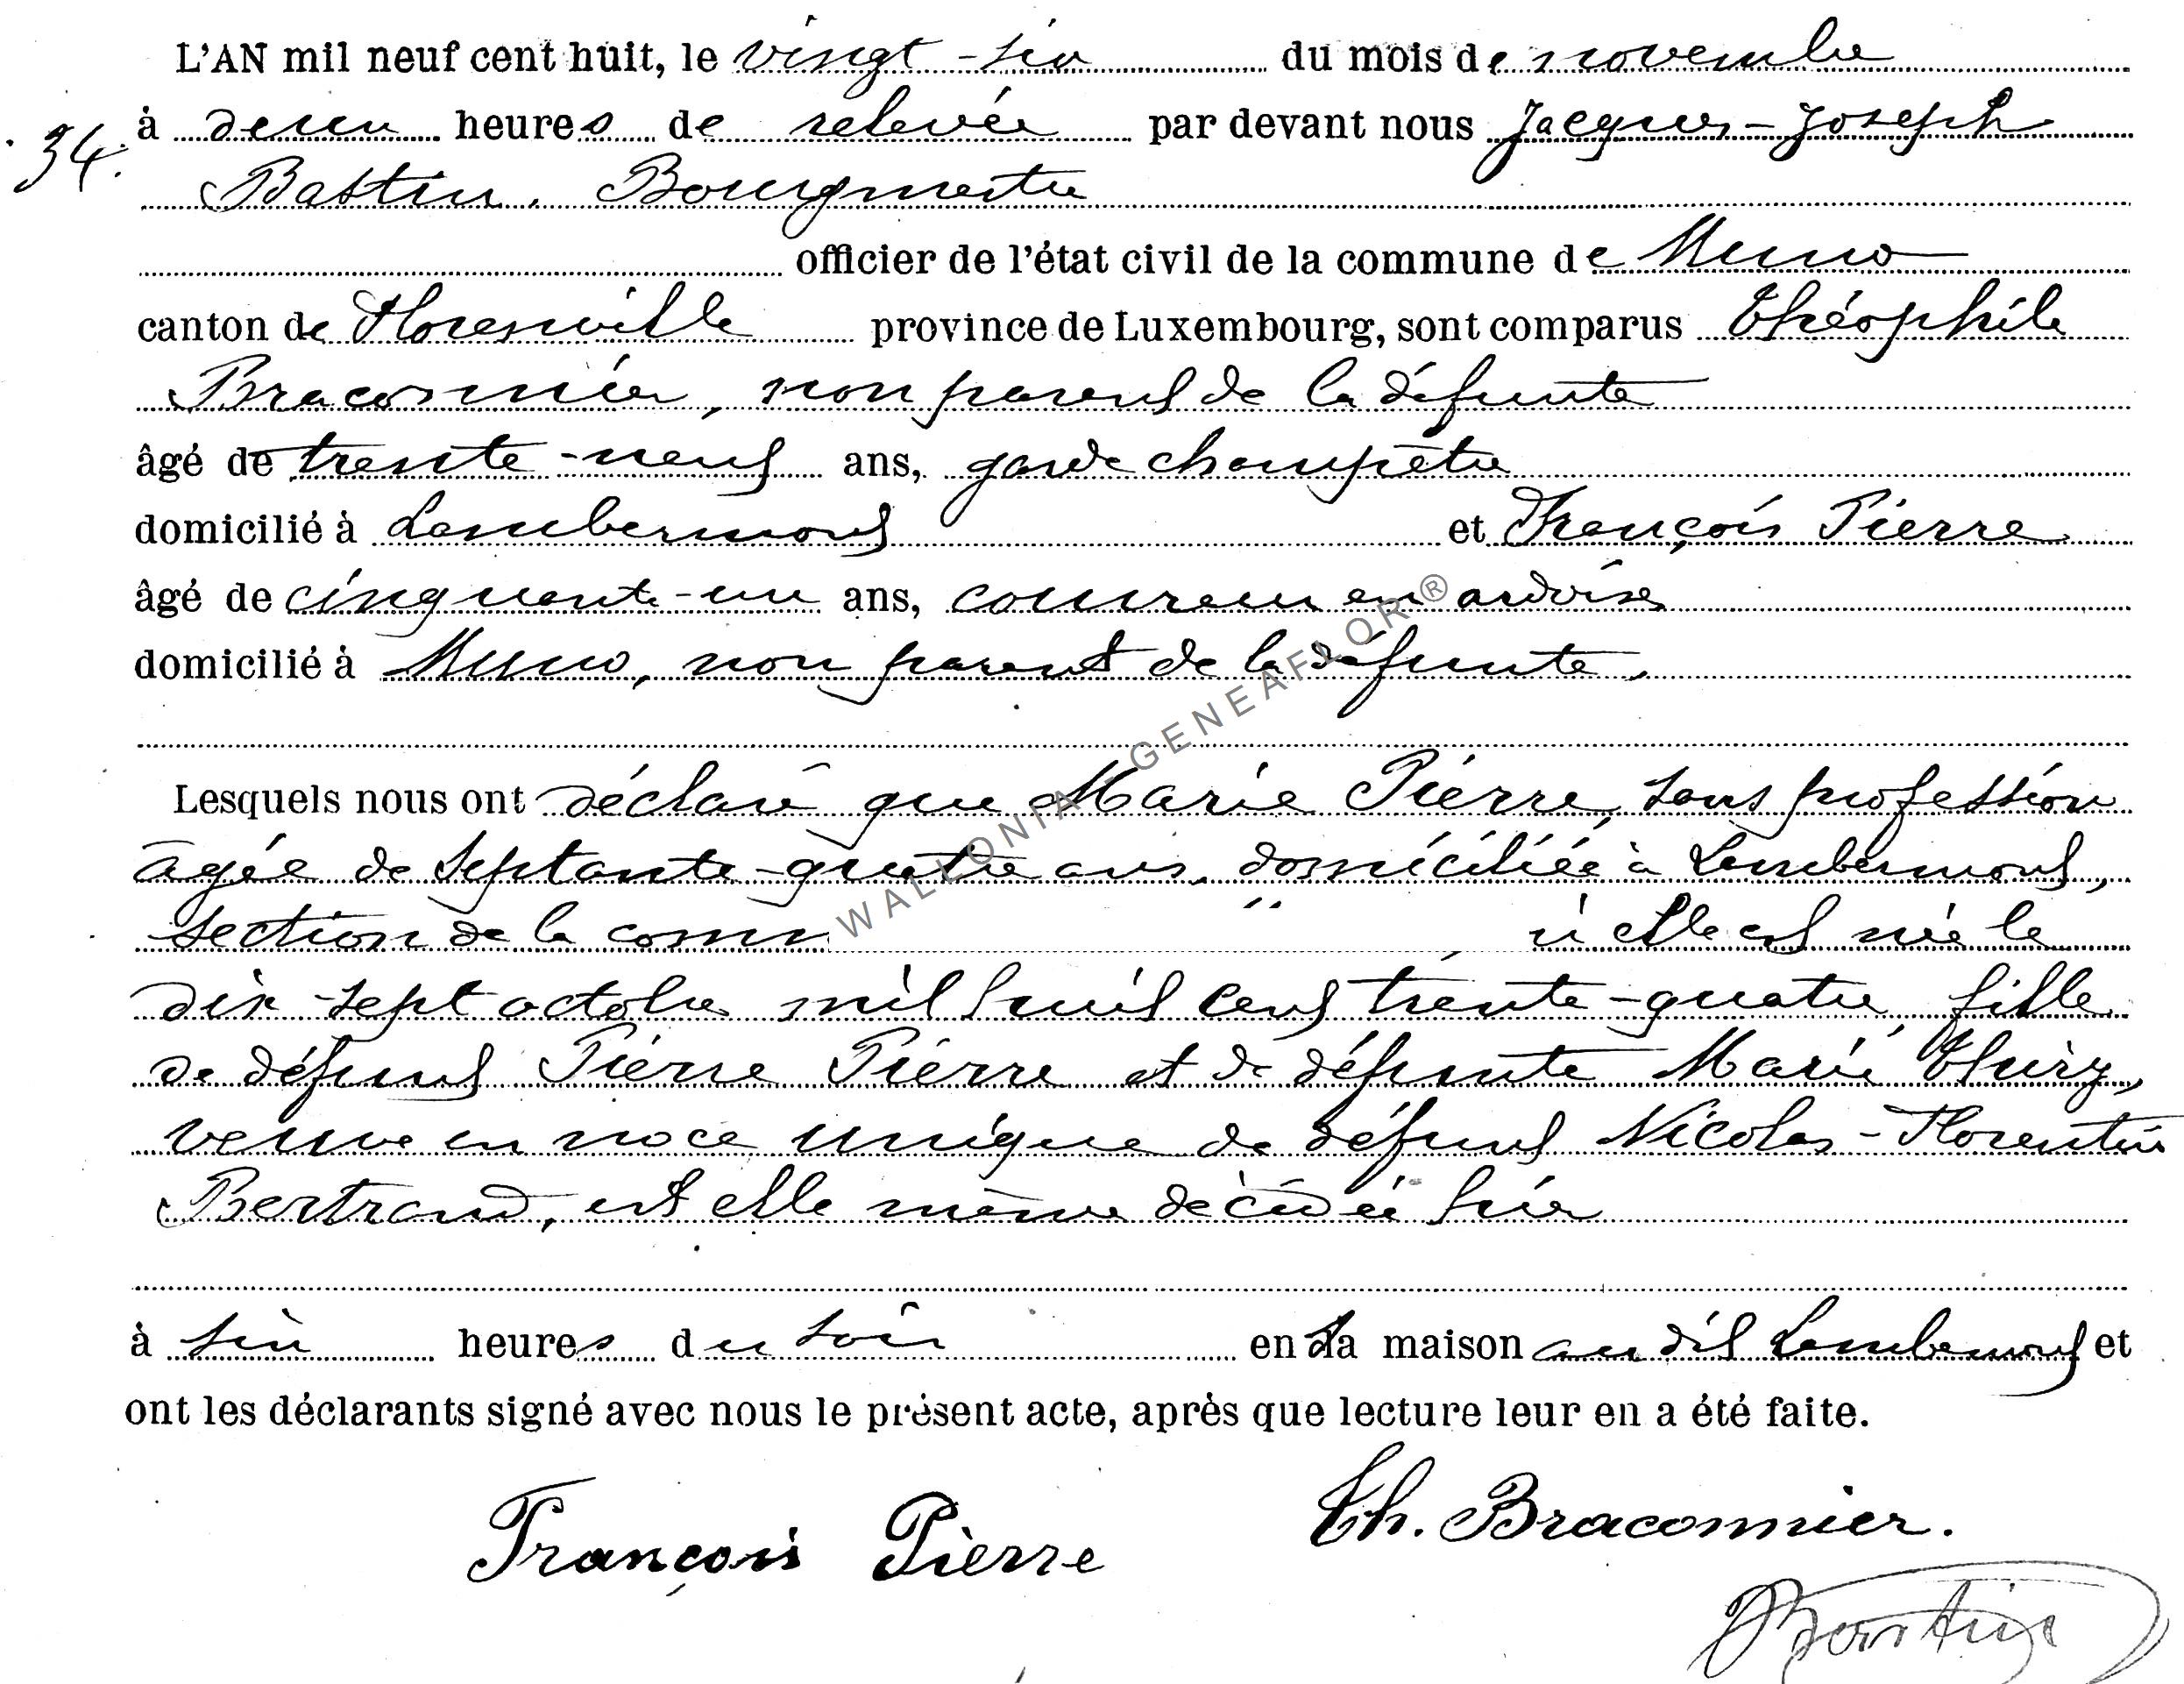 L'AN mil neuf cent huit, le vingt-six du mois de novembre
34. à deux heures de relevée par devant nous Jacques-Joseph
Bastin, Bourgmestre
officier de l'état civil de la commune de Muno
canton de Florenville province de Luxembourg, sont comparus Théophile
Braconnier, non parent de la défunte
âgé de trente-neuf ans, garde champêtre
domicilié à Lambermont et François Pierre
âgé de cinquante-un ans, couvreur en ardoises
domicilié à Muno, non parent de la défunte,
Lesquels nous ont déclaré que Marie Pierre, sans profession
âgée de septante-quatre ans, domiciliée à Lambermont,
section de la comm ù elle est née le
dix-sept octobre mil huit cent trente-quatre, fille
de défunt Pierre Pierre et de défunte Marie Thiry,
veuve en noce unique de défunt Nicolas-Florentin
Bertrand, est elle même décédée hier
à six heures du soir en sa maison au dit Lambermont et
ont les déclarants signé avec nous le présent acte, après que lecture leur en a été faite.
François Pierre Th. Braconnier.
Bastin
WALLONIA - GENEAFLOR ®